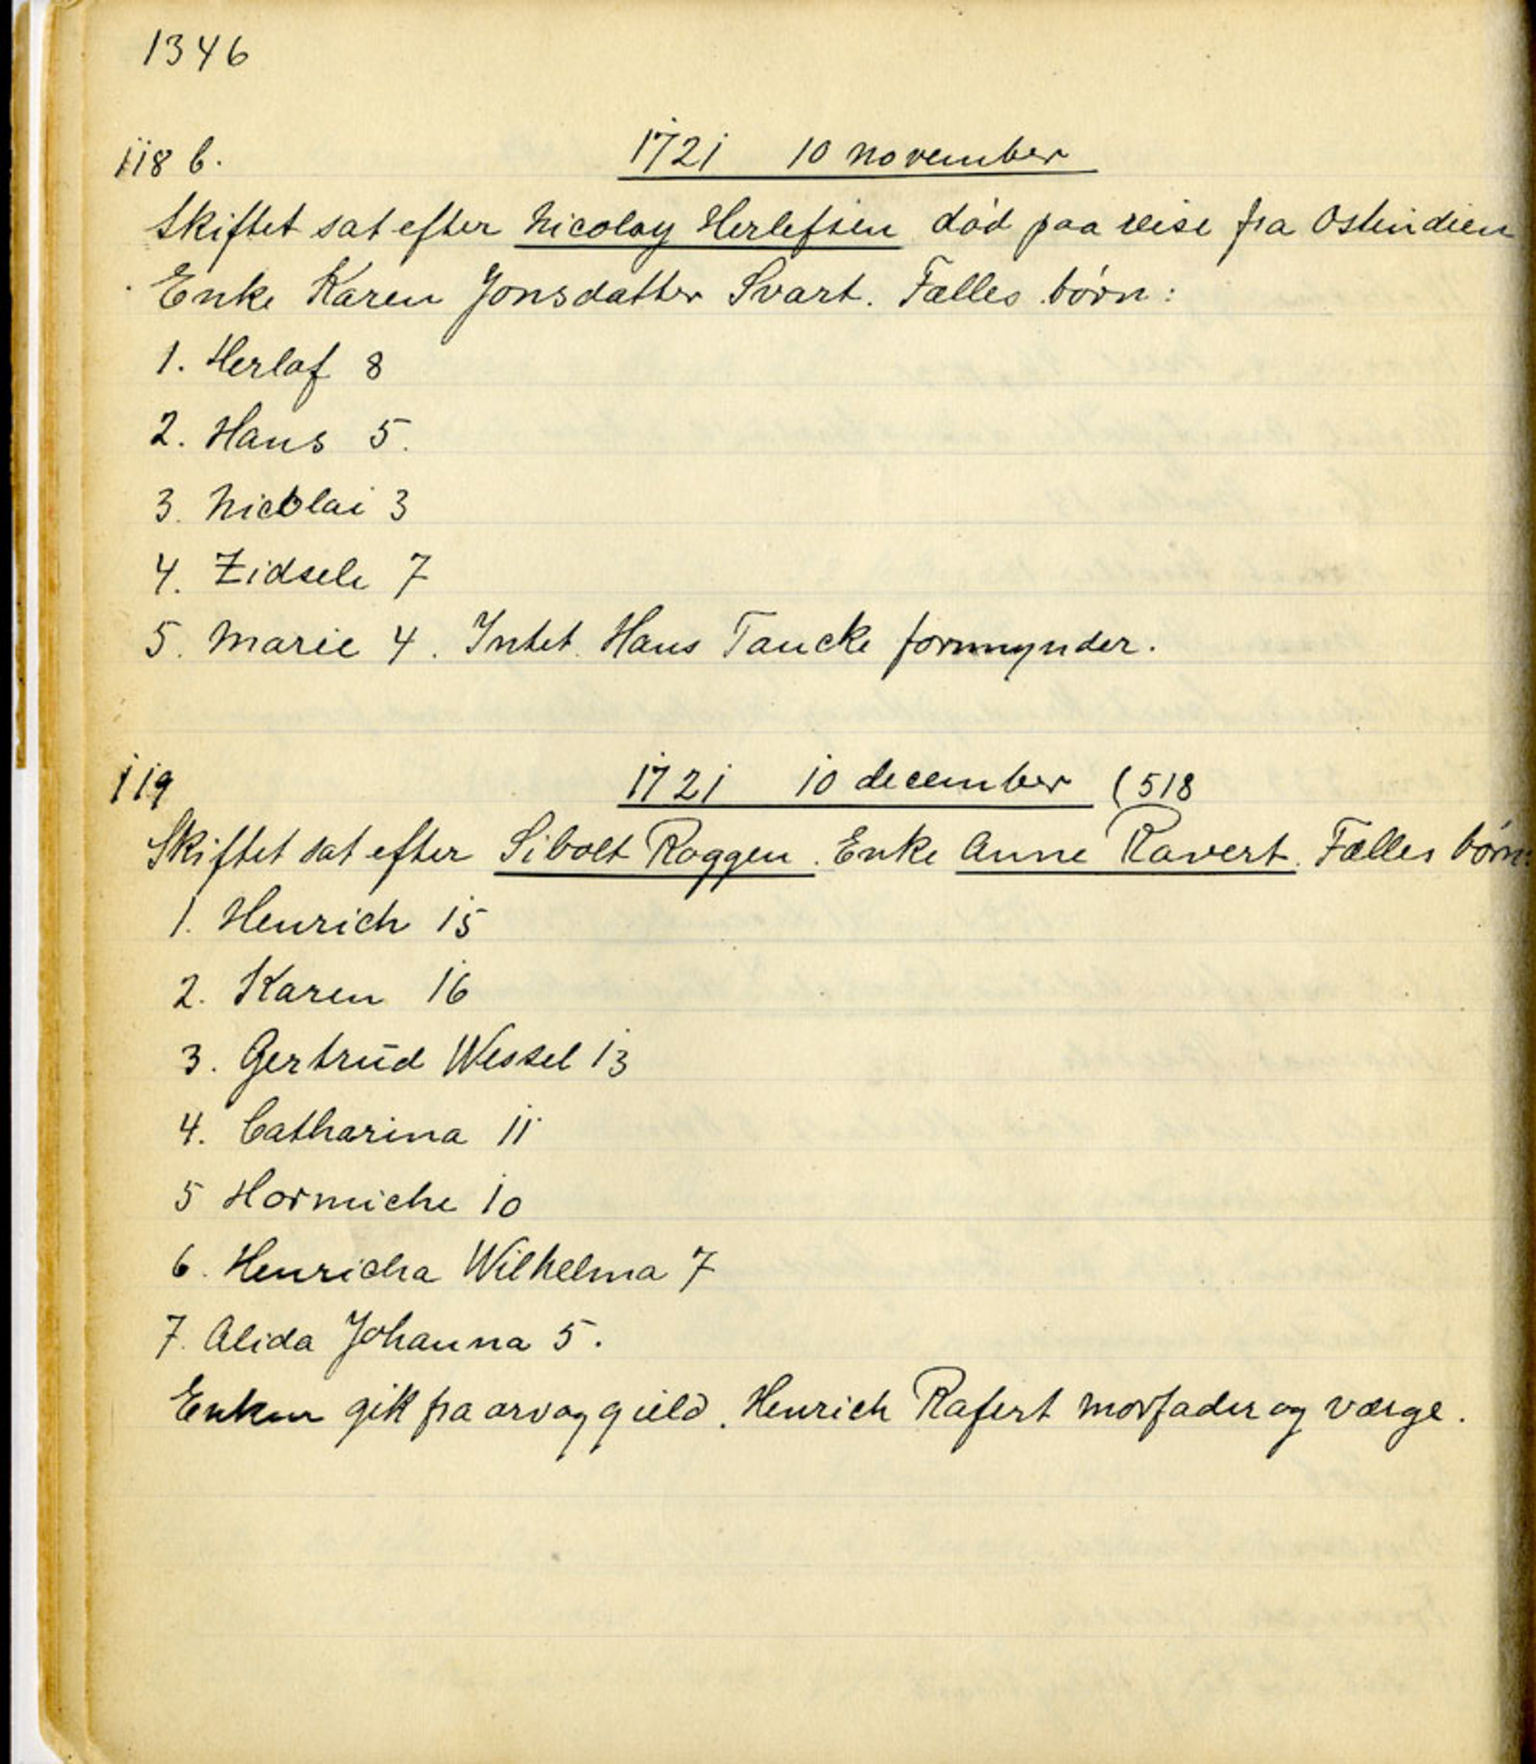 1346
118 b. 1721 10 november
Skiftet sat efter Nicolay Herlefsen død paa reise fra Ostindien
Enke Karen Jonsdatter Svart. Fælles børn:
1. Herlof 8
2. Hans 5.
3. Nicolai 3
4. Zidsele 7
5. Marie 4. Intet. Hans Tancke formynder.
119 1721 10 december (518
Skiftet sat efter Sibolt Roggen. Enke Anne Ravert. Fælles børn:
1. Henrich 15
2. Karen 16
3. Gertrud Wessel 13
4. Catharina 11
5 Hormiche 10
6. Henricha Wilhelma 7
7. Alida Johanna 5.
Enken gik fra arv og gield. Henrich Rafert morfader og værge.